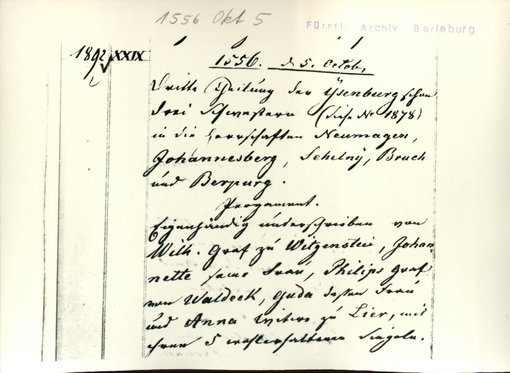 1556 Okt 5
Fürstl. Archiv Berleburg
1892 XXIX
1556. d. 5. Octob.
Dritte Theilung der Ysenburgischen
drei Schwestern (siehe No 1878)
in die Herrschaften Neumagen,
Johannesberg, Sehlny, Bruch
und Berpurg.
Pergament.
Eigenhändig unterschrieben von
Wilh. Graf zu Witgenstein, Johan-
nette seine Frau, Philips Graf
von Waldeck, Guda dessen Frau
und Anna Witwe zu Lier, mit
ihren 5 wohlerhaltenen Siegeln.